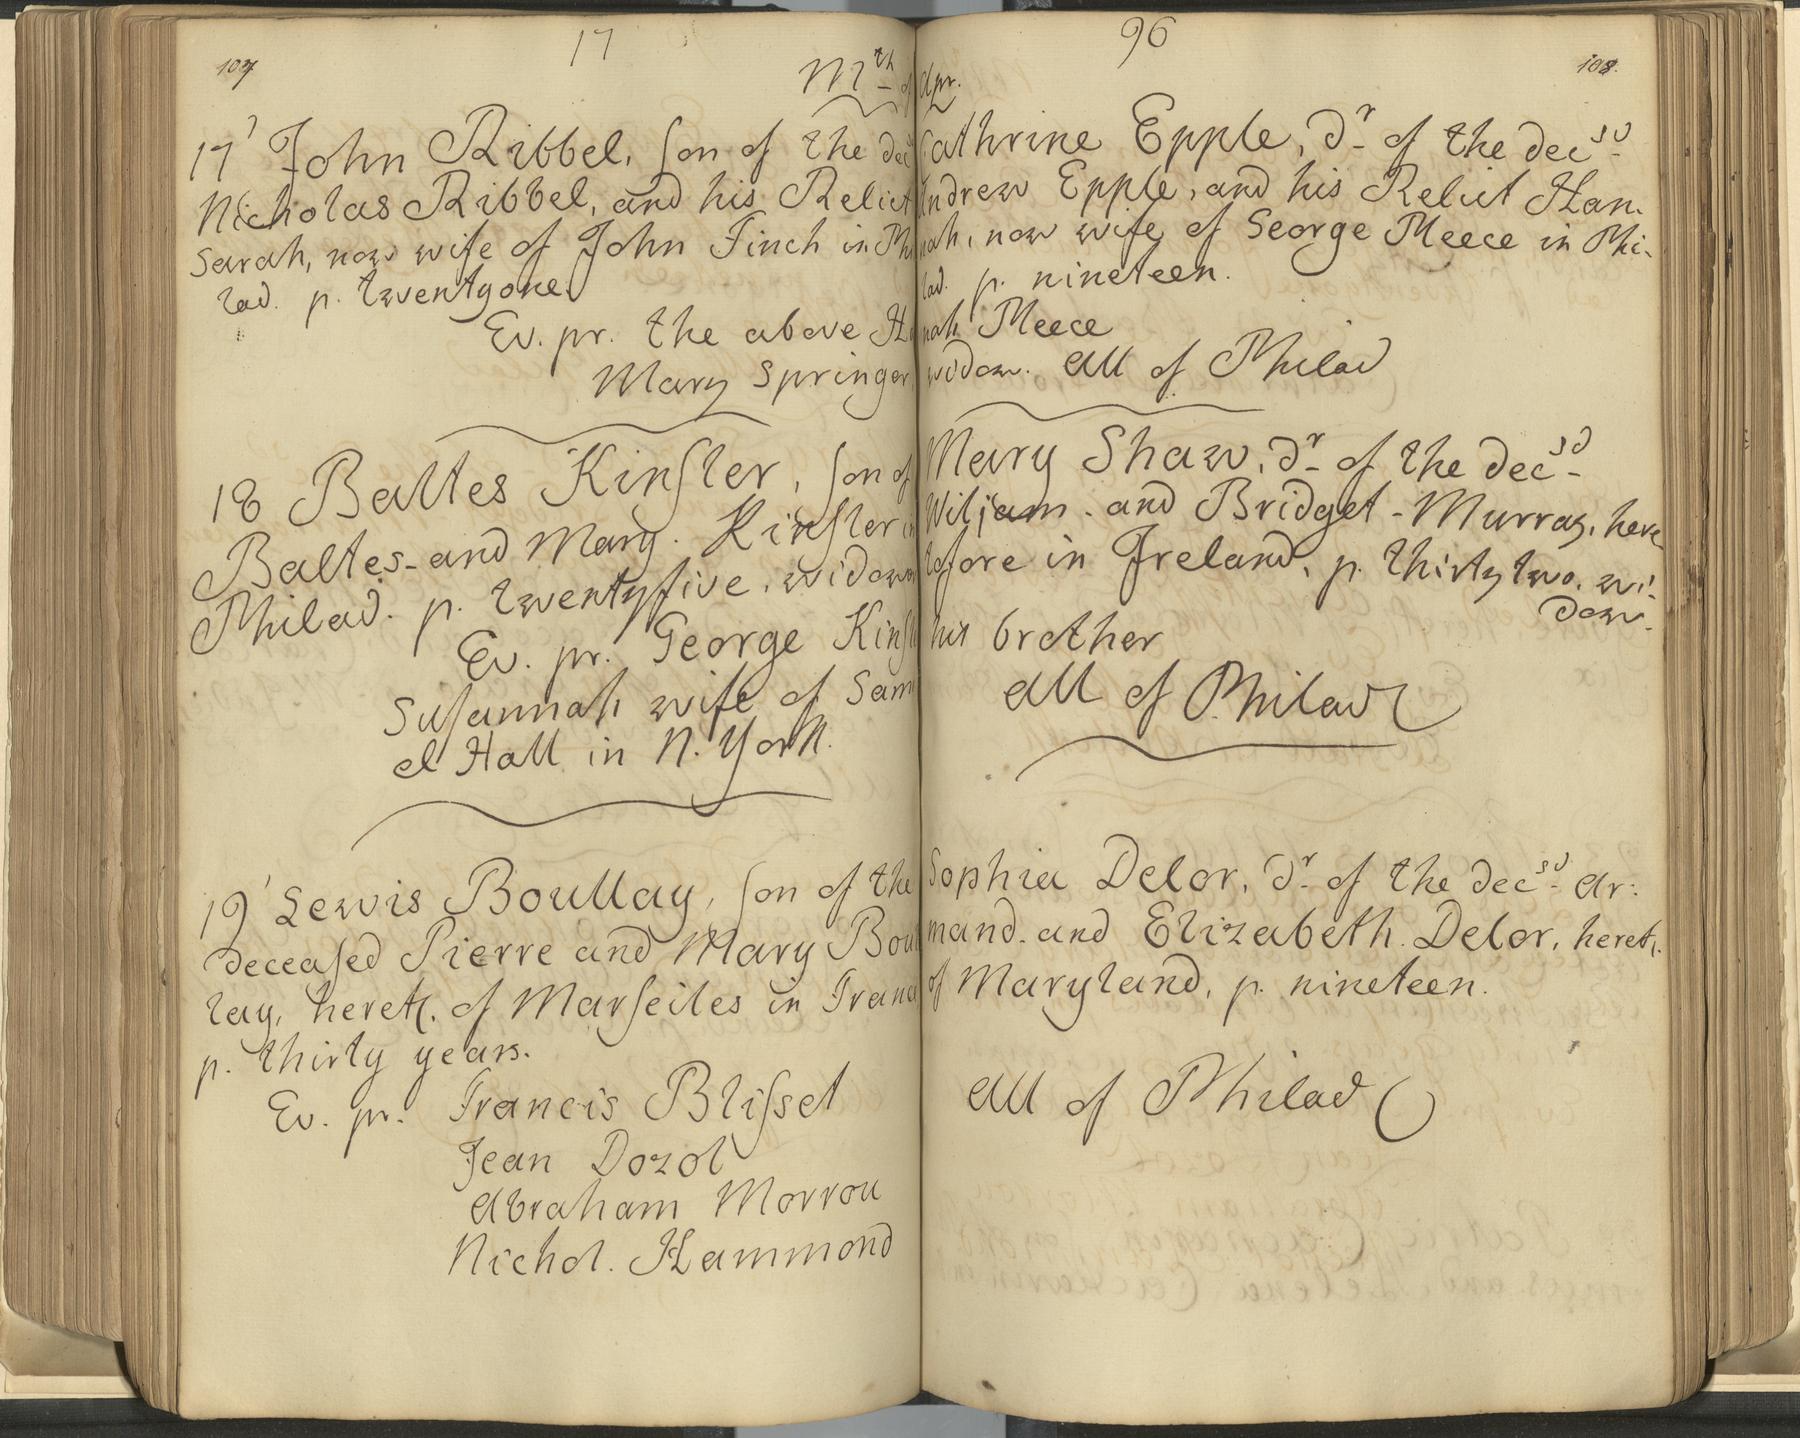 17
107
Mth of
17 John Ribbel, son of the dec
Nicholas Ribbel, and his Relict
Sarah, now wife of John Finch in Phi
lad. p. twentyone
Ev. pr. the above Ha
Mary Springer
18 Baltes Kinsler, son of
Baltes and Mary. Kinsler in
Philad. p. twentyfive, widower
Ev. pr. George Kinsl
Susannah wife of Samu
el Hall in N. York.
19 Lewis Boullay, son of the
deceased Pierre and Mary Boul
lay, heretf. of Marseiles in Franc
p. thirty years.
Ev. pr. Francis Blisset
Jean Dozol
Abraham Morrou
Nichol. Hammond
96
108.
Apr.
Cathrine Epple, dr of the decsd
Andrew Epple, and his Relict Han-
nah, now wife of George Meece in Phi-
lad. p. nineteen.
nah Meece
widow. All of Philad
Mary Shaw, dr of the decsd
Wiljam and Bridget Murray, here
tofore in Jreland, p. thirtytwo, wi-
dow.
his brother
All of Philad
Sophia Delor, dr of the decsd Ar:
mand. and Elizabeth. Delor, heretf.
of Maryland, p. nineteen.
All of Philad